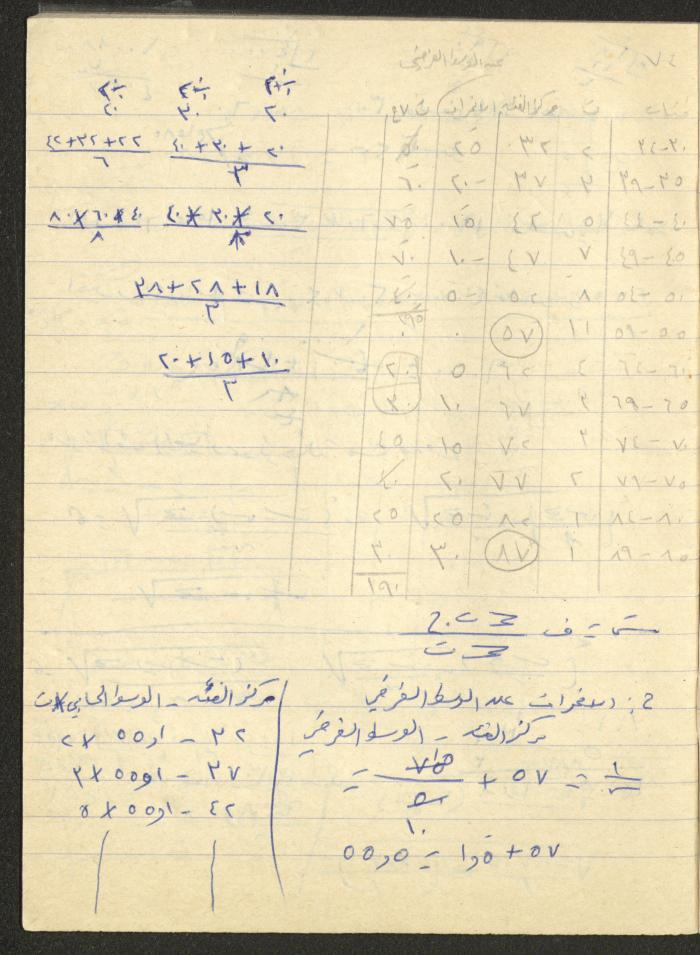 ٧٤
عن الوسط الفرضي
فئات ت مركز الفئة الانحراف ت × ح
٣٠-٣٤ ٢ ٣٢ ٢٥ ٥٠
٣٥-٣٩ ٣ ٣٧ -٢٠ ٦٠
٤٠-٤٤ ٥ ٤٢ ١٥ ٧٥
٤٥-٤٩ ٧ ٤٧ -١٠ ٧٠
٥٠-٥٤ ٨ ٥٢ -٥ ٤٠
٢٩٥
٥٥-٥٩ ١١ ٥٧ ٠ ٠
٦٠-٦٤ ٤ ٦٢ ٥ ٢٠
٦٥-٦٩ ٣ ٦٧ ١٠ ٣٠
٧٠-٧٤ ٣ ٧٢ ١٥ ٤٥
٧٥-٧٩ ٢ ٧٧ ٢٠ ٤٠
٨٠-٨٤ ١ ٨٢ ٢٥ ٢٥
٨٥-٨٩ ١ ٨٧ ٣٠ ٣٠
١٩٠
٢٠ ٣٠ ٤٠
٢٠ + ٣٠ + ٤٠
٣
٢٢+٣٢+٤٢
٦
٢٠ × ٣٠ × ٤٠
٣
٤٠×٦٠×٨٠
٨
١٨+٢٨+٣٨
٣
١٠+١٥+٢٠
٣
ح: الانحراف عن الوسط الفرضي
مركز الفئة - الوسط الفرضي
٥٧ +
٥٧ + ١٫٥ = ٥٥٫٥
مركز الفئة - الوسط الحسابي × ت
٣٢ - ٥٥٫١ × ٢
٣٧ - ٥٥٫١ × ٣
٤٢ - ٥٥٫١ × ٥